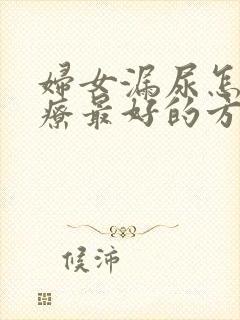 婦女漏尿怎
療最好的方
候沛